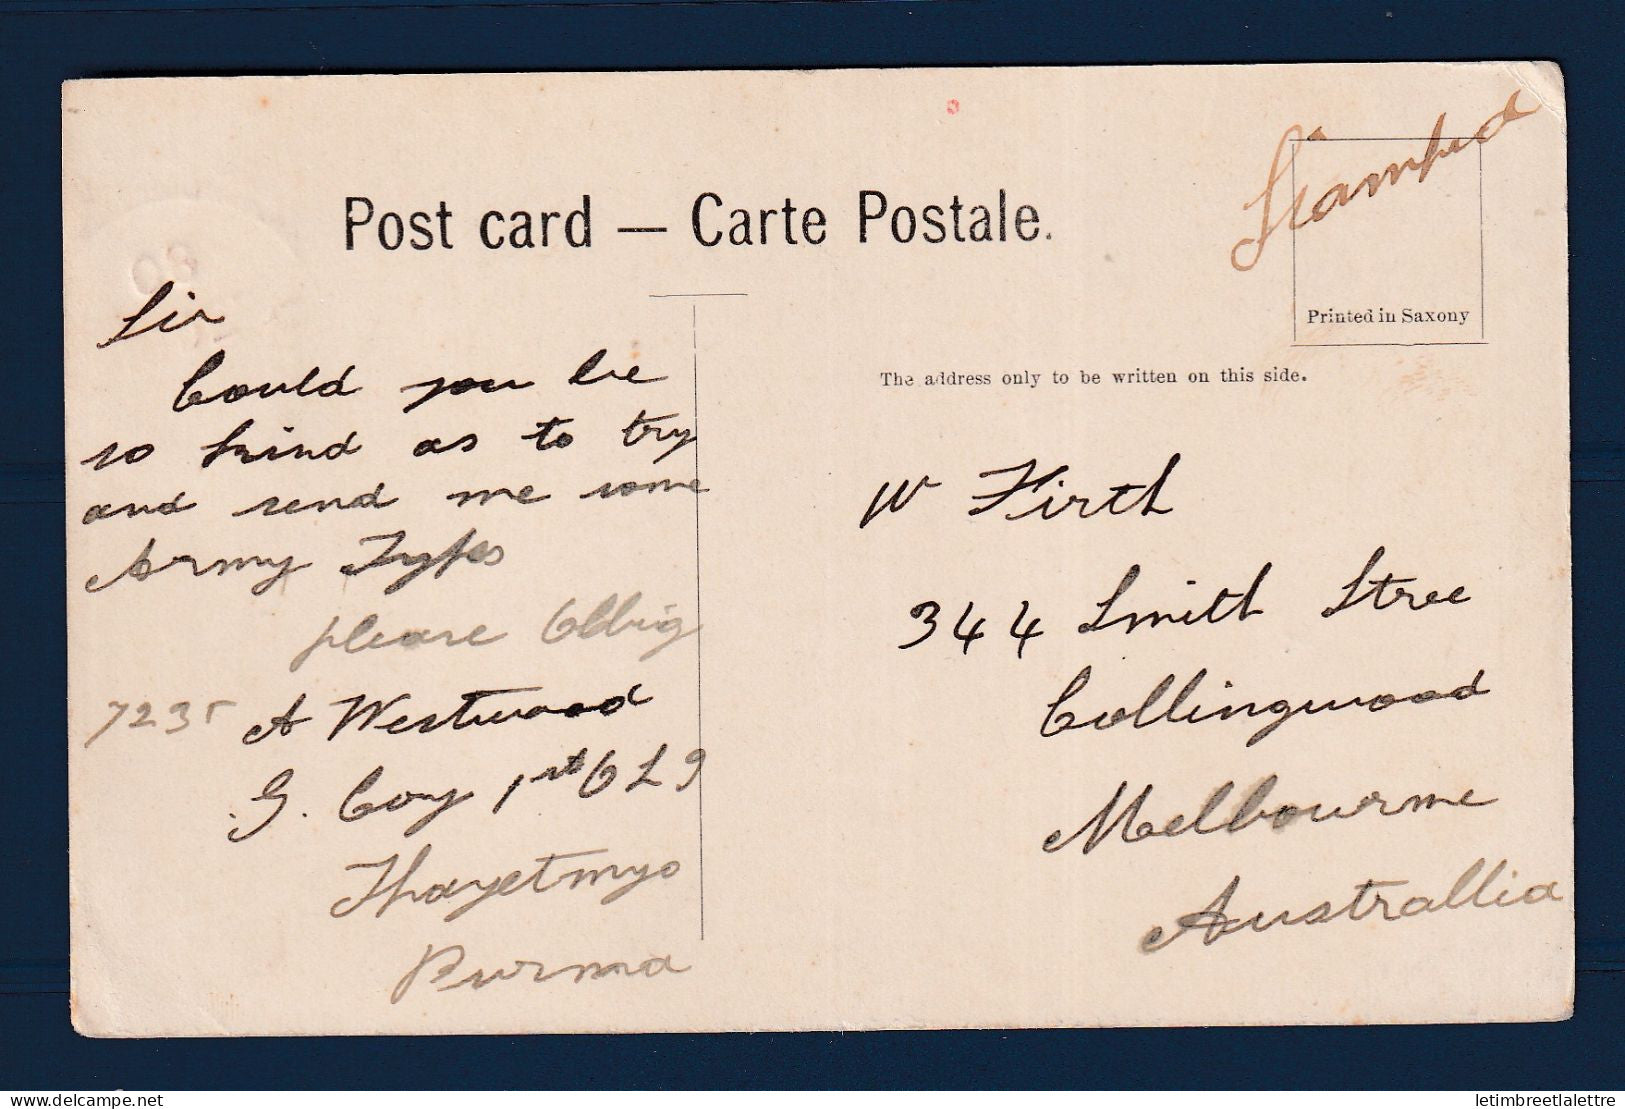 Stamped
Post card — Carte Postale.
Printed in Saxony
The address only to be written on this side.
Sir
Could you be
so kind as to try
and send me some
Army Types
please Oblig
7235 A Westwood
G. Coy 1st
Thayetmyo
Burma
W Firth
344 Smith Stree
Collingwood
Melbourne
Australlia
letimbreetlalettre